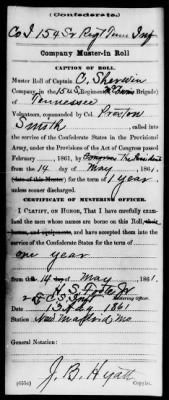 (Confederate.)
Co I 154 Sr Regt Tenn Inf
Company Muster-in Roll
CAPTION OF ROLL.
Muster Roll of Captain C. Sherwin
Company, in the 154 Regiment Brigade) of
Tennessee
Volunteers, commanded by Col. Preston
Smith, called into
the service of the Confederate States in the Provisional
Army, under the Provisions of the Act of Congress passed
February , 1861, by The President
from the 14 day of May, 1861,
(date of this Muster) for the term of 1 year
unless sooner discharged.
CERTIFICATE OF MUSTERING OFFICER.
I CERTIFY, ON HONOR, That I have carefully examined
the men whose names are borne on this Roll, their
and equipments, and have accepted them into the
service of the Confederate States for the term of
one year
from the 14 day of May, 1861.
Mustering officer.
Date 1861
Station: New Madrid Mo
General Notation:
J. B. Hyatt
(655c) Copyist.